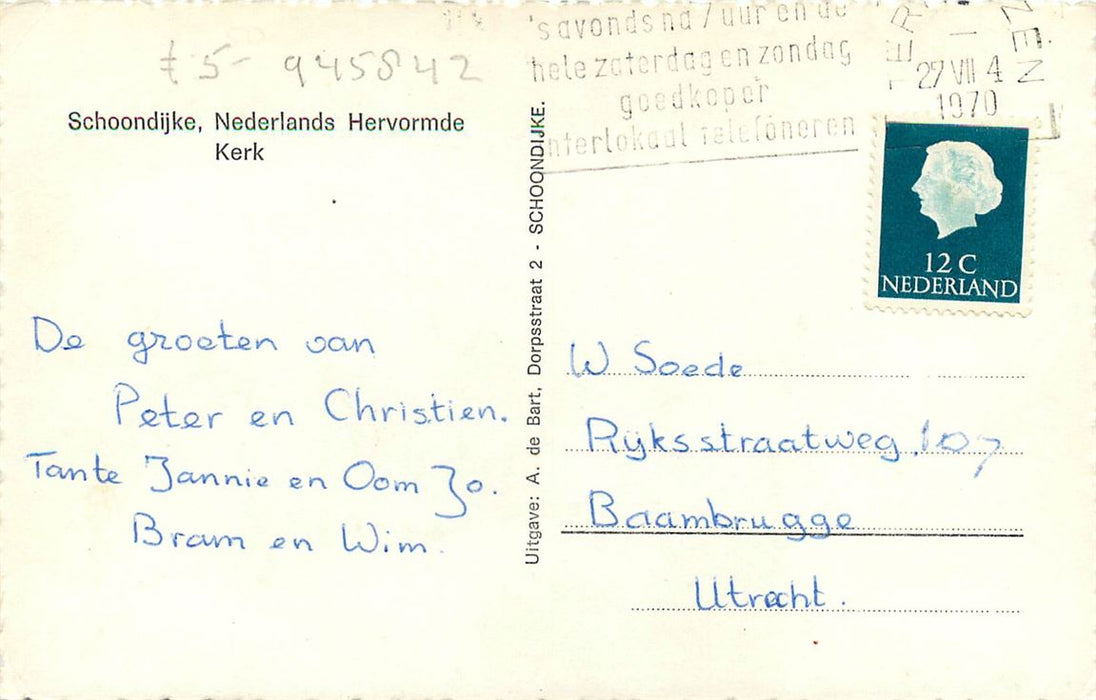 £5- 945842
Schoondijke, Nederlands Hervormde
Kerk
De groeten van
Peter en Christien.
Tante Jannie en Oom Jo.
Bram en Wim.
Uitgave: A. de Bart, Dorpsstraat 2 - SCHOONDIJKE.
'savonds na 7 uur en de
hele zaterdag en zondag
goedkoper
interlokaal telefoneren
27 VII 4
1970
12 C
NEDERLAND
W Soede
Rijksstraatweg 107
Baambrugge
Utrecht.